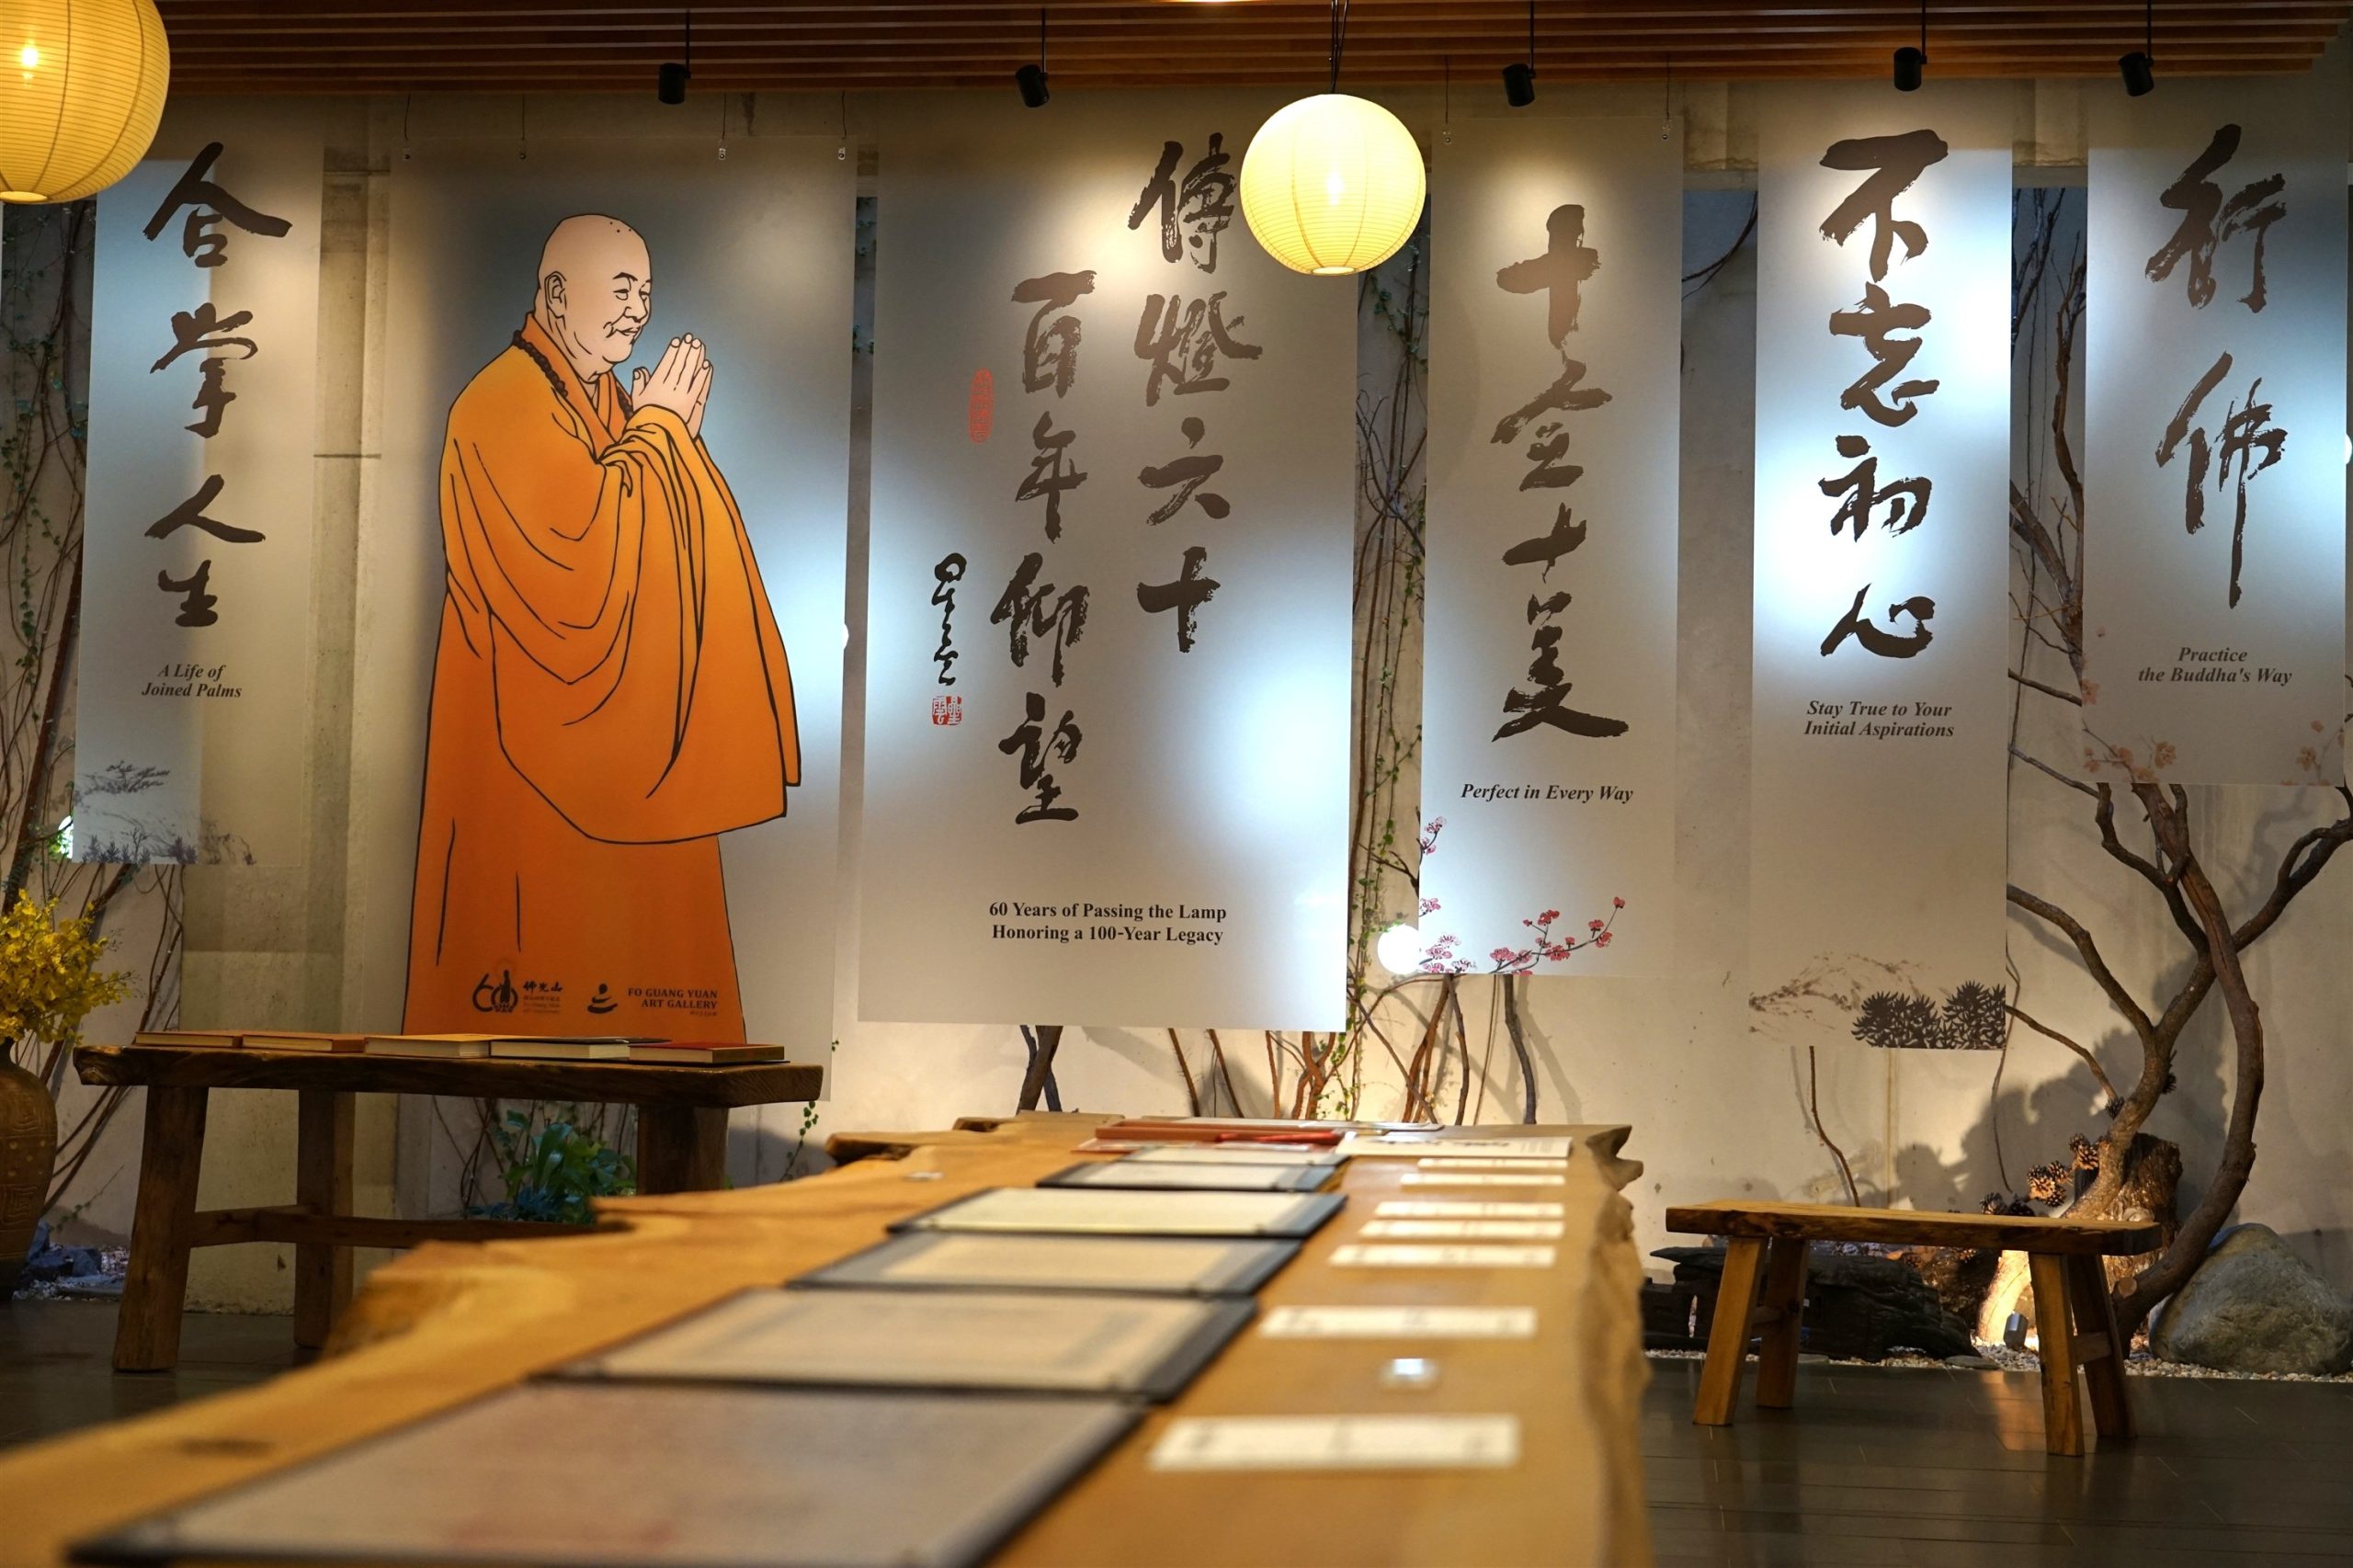 合掌人生
A Life of
Joined Palms
佛光山
FO GUANG YUAN
ART GALLERY
傳燈六十
百年仰望
星雲
60 Years of Passing the Lamp
Honoring a 100-Year Legacy
十全十美
Perfect in Every Way
不忘初心
Stay True to Your
Initial Aspirations
行佛
Practice
the Buddha's Way